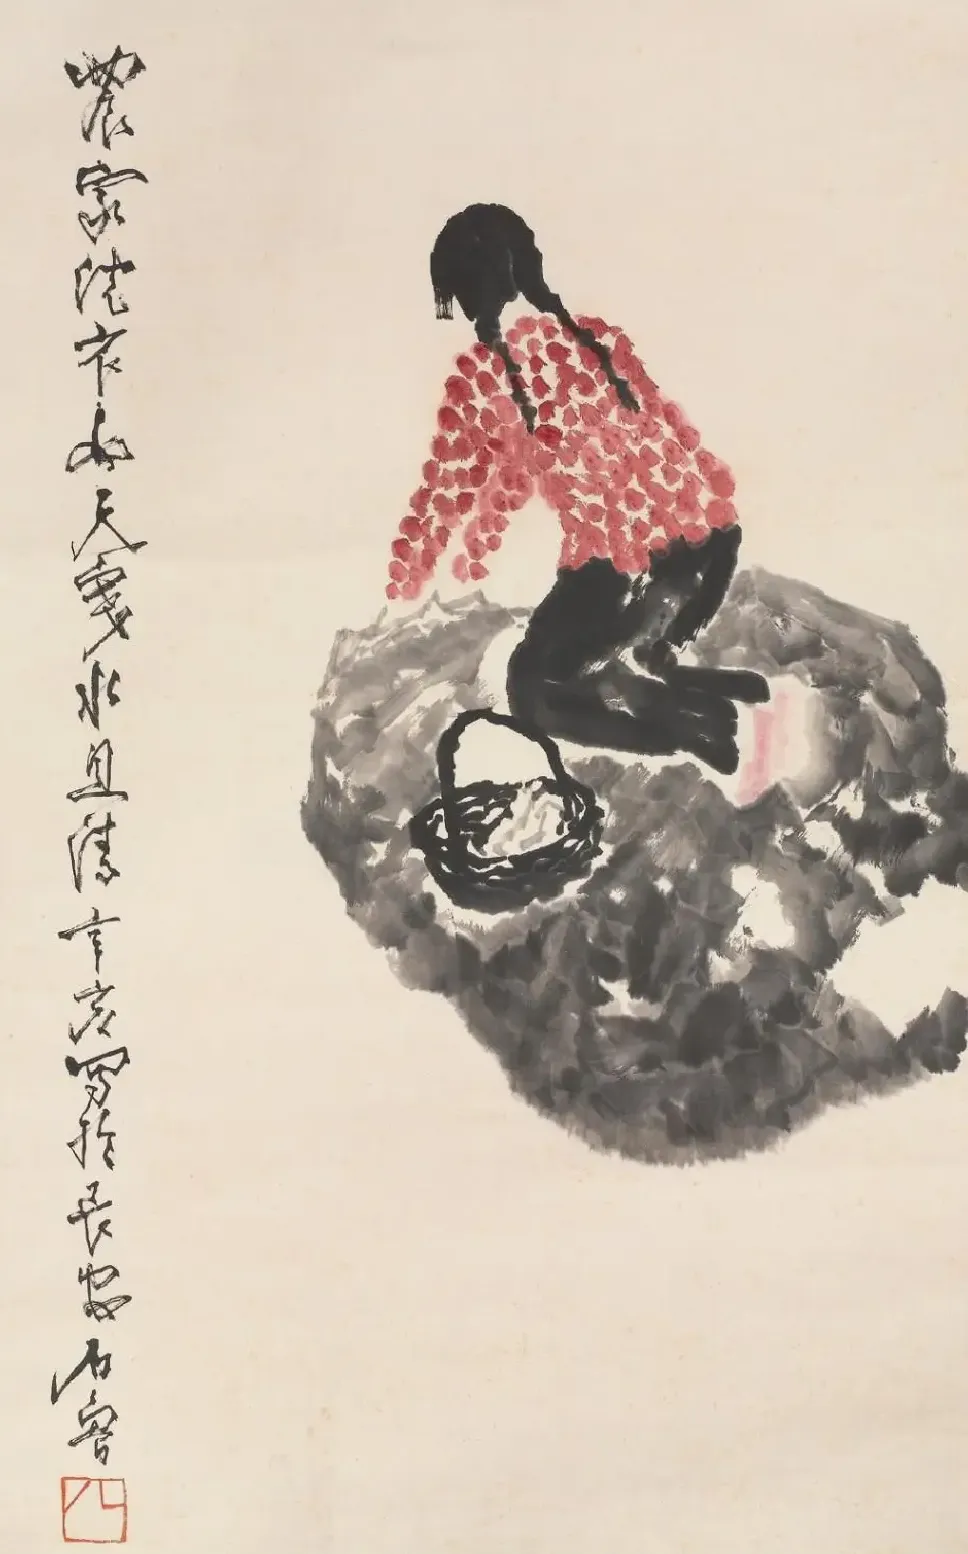 農家洗衣女天寬水且清辛亥寫於長安石魯